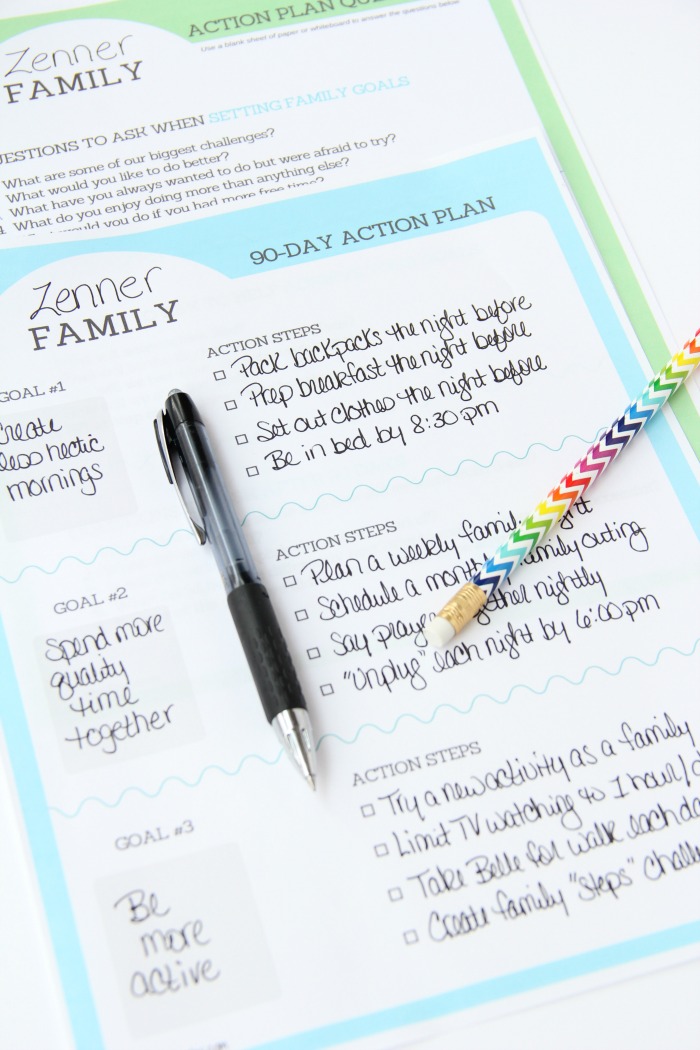 ACTION PLAN
Use a blank sheet of paper or whiteboard to answer the questions below.
Zenner
FAMILY
TO ASK WHEN SETTING FAMILY GOALS
What are some of our biggest challenges?
What would you like to do better?
What have you always wanted to do but were afraid to try?
What do you enjoy doing more than anything else?
would you do if you had more free time?
90-DAY ACTION PLAN
Zenner
FAMILY
GOAL #1
Create
less hectic
mornings
ACTION STEPS
Pack backpacks the night before
Prep breakfast the night before
Set out clothes the night before
Be in bed by 8:30 pm
GOAL #2
Spend more
quality
time
together
ACTION STEPS
Plan a weekly
Schedule a family outing
Say nightly
"Unplug" each night by 6:00 pm
GOAL #3
Be
more
active
ACTION STEPS
Try a new activity as a family
Limit TV watching to 1 hour/
Take Belle for walk each
Create family "steps"